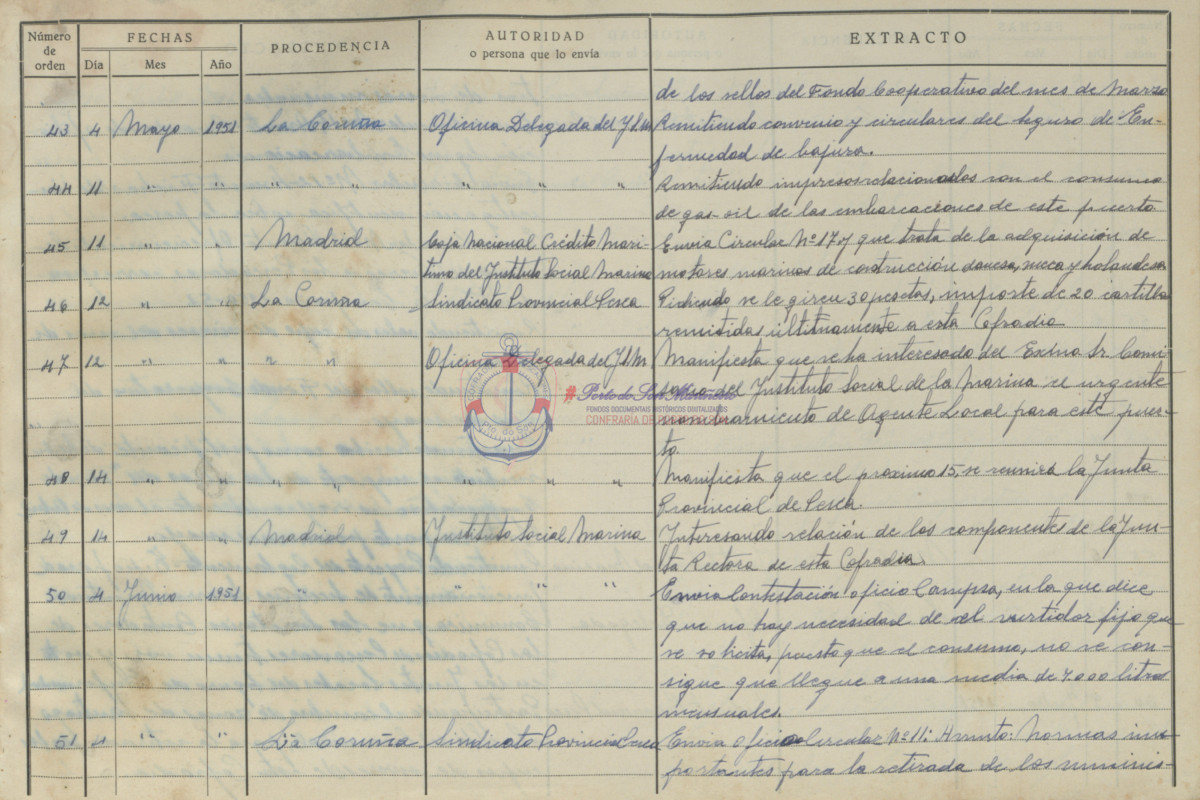 Número de orden
FECHAS
Día
Mes
Año
PROCEDENCIA
AUTORIDAD
o persona que lo envía
EXTRACTO
de los sellos del Fondo Cooperativo del mes de Marzo
43 4 Mayo 1951 La Coruña Oficina Delegada del I.S.M. Remitiendo convenio y circulares del seguro de En-
fermedad de bajura.
44 11 " " " " " " " Remitiendo impresos relacionados con el consumo
de gas-oil de las embarcaciones de este puerto
45 11 " " Madrid Caja Nacional Crédito Marí- Envia Circular Nº 17 y que trata de la adquisición de
timo del Instituto Social Marina motores marinos de construcción danesa, sueca y holandesa
46 12 " " La Coruña Sindicato Provincial Pesca Pidiendo se le giren 30 pesetas, importe de 20 cartilla
remitidas ultimamente a esta Cofradia
47 12 " " " " Oficina Delegada del I.S.M Manifiesta que se ha interesado del Excmo Sr. Comi
sario del Instituto Social de la Marina el urgente
nombramiento de Agente Local para este puer-
to.
48 14 " " " " " " " Manifiesta que el proximo 15, se reunirá la Junta
Provincial de Pesca.
49 14 " " Madrid Instituto Social Marina Interesando relación de los componentes de la Jun-
ta Rectora de esta Cofradia.
50 4 Junio 1951 " " " " Envia Contestación oficio Campsa, en la que dice
que no hay necesidad de el surtidor fijo que
se solicita, puesto que el consumo, no se con-
sigue que llegue a una media de 7.000 litros
mensuales.
51 4 " " La Coruña Sindicato Provincial Pesca Envia oficio Circular Nº 11: Asunto: Normas im-
portantes para la retirada de los suminis-
Porto do Son
FONDOS DOCUMENTAIS HISTÓRICOS DIXITALIZADOS
CONFRARIA DE